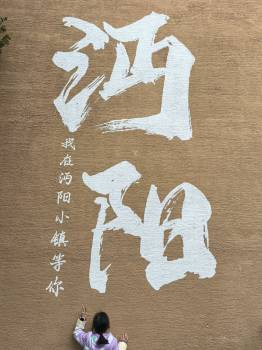 沔阳
我在沔阳小镇等你